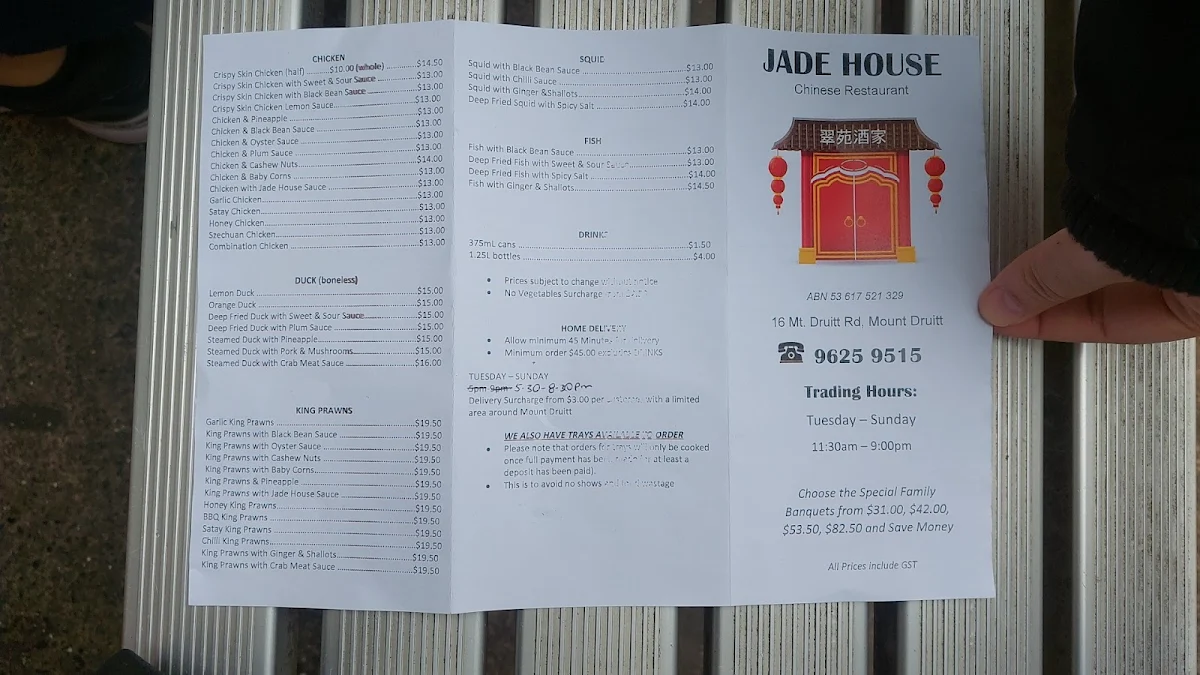 CHICKEN
Crispy Skin Chicken (half) ........$10.00 (whole) ............$14.50
Crispy Skin Chicken with Sweet & Sour Sauce ..............$13.00
Crispy Skin Chicken with Black Bean Sauce ..................$13.00
Crispy Skin Chicken Lemon Sauce..............................$13.00
Chicken & Pineapple ..............................................$13.00
Chicken & Black Bean Sauce ....................................$13.00
Chicken & Oyster Sauce ..........................................$13.00
Chicken & Plum Sauce ............................................$13.00
Chicken & Cashew Nuts...........................................$14.00
Chicken & Baby Corns ............................................$13.00
Chicken with Jade House Sauce ................................$13.00
Garlic Chicken......................................................$13.00
Satay Chicken.......................................................$13.00
Honey Chicken......................................................$13.00
Szechuan Chicken..................................................$13.00
Combination Chicken .............................................$13.00
DUCK (boneless)
Lemon Duck .........................................................$15.00
Orange Duck ........................................................$15.00
Deep Fried Duck with Sweet & Sour Sauce..................$15.00
Deep Fried Duck with Plum Sauce .............................$15.00
Steamed Duck with Pineapple...................................$15.00
Steamed Duck with Pork & Mushrooms......................$15.00
Steamed Duck with Crab Meat Sauce ........................$16.00
KING PRAWNS
Garlic King Prawns ................................................$19.50
King Prawns with Black Bean Sauce ..........................$19.50
King Prawns with Oyster Sauce ................................$19.50
King Prawns with Cashew Nuts ................................$19.50
King Prawns with Baby Corns...................................$19.50
King Prawns & Pineapple ........................................$19.50
King Prawns with Jade House Sauce .........................$19.50
Honey King Prawns................................................$19.50
BBQ King Prawns ..................................................$19.50
Satay King Prawns .................................................$19.50
Chilli King Prawns..................................................$19.50
King Prawns with Ginger & Shallots...........................$19.50
King Prawns with Crab Meat Sauce ...........................$19.50
SQUID
Squid with Black Bean Sauce ...................................$13.00
Squid with Chilli Sauce ...........................................$13.00
Squid with Ginger &Shallots.....................................$14.00
Deep Fried Squid with Spicy Salt ..............................$14.00
FISH
Fish with Black Bean Sauce .....................................$13.00
Deep Fried Fish with Sweet & Sour Sauce...................$13.00
Deep Fried Fish with Spicy Salt ................................$14.00
Fish with Ginger & Shallots......................................$14.50
DRINKS
375mL cans ..........................................................$1.50
1.25L bottles .........................................................$4.00
• Prices subject to change without notice
• No Vegetables Surcharge
HOME DELIVERY
• Allow minimum 45 Minutes for delivery
• Minimum order $45.00 excludes DRINKS
TUESDAY – SUNDAY
5pm-9pm 5.30-8.30pm
Delivery Surcharge from $3.00 per with a limited
area around Mount Druitt
WE ALSO HAVE TRAYS AVAILABLE TO ORDER
• Please note that orders for trays will only be cooked
once full payment has been at least a
deposit has been paid).
• This is to avoid no shows and wastage
JADE HOUSE
Chinese Restaurant
翠苑酒家
ABN 53 617 521 329
16 Mt. Druitt Rd, Mount Druitt
☎ 9625 9515
Trading Hours:
Tuesday – Sunday
11:30am – 9:00pm
Choose the Special Family
Banquets from $31.00, $42.00,
$53.50, $82.50 and Save Money
All Prices include GST